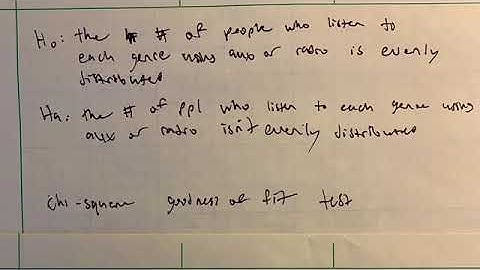 H₀: the # of people who listen to
each genre using aux or radio is evenly
distributed
Ha: the # of ppl who listen to each genre using
aux or radio isn't evenly distributed
chi-square goodness of fit test